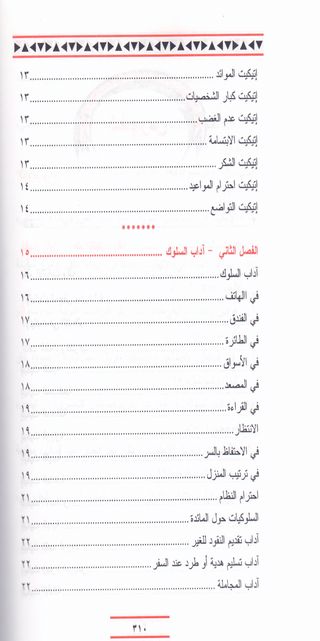 إتيكيت الموائد ........ ١٣
إتيكيت كبار الشخصيات ........ ١٣
إتيكيت عدم الغضب ........ ١٣
إتيكيت الابتسامة ........ ١٣
إتيكيت الشكر ........ ١٣
إتيكيت احترام المواعيد ........ ١٤
إتيكيت التواضع ........ ١٤
*******
الفصل الثاني - آداب السلوك ........ ١٥
آداب السلوك ........ ١٦
في الهاتف ........ ١٦
في الفندق ........ ١٧
في الطائرة ........ ١٧
في الأسواق ........ ١٨
في المصعد ........ ١٨
في القراءة ........ ١٩
الانتظار ........ ١٩
في الاحتفاظ بالسر ........ ١٩
في ترتيب المنزل ........ ١٩
احترام النظام ........ ٢١
السلوكيات حول المائدة ........ ٢١
آداب تقديم النقود للغير ........ ٢٢
آداب تسليم هدية أو طرد عند السفر ........ ٢٢
آداب المجاملة ........ ٢٢
٣١٠